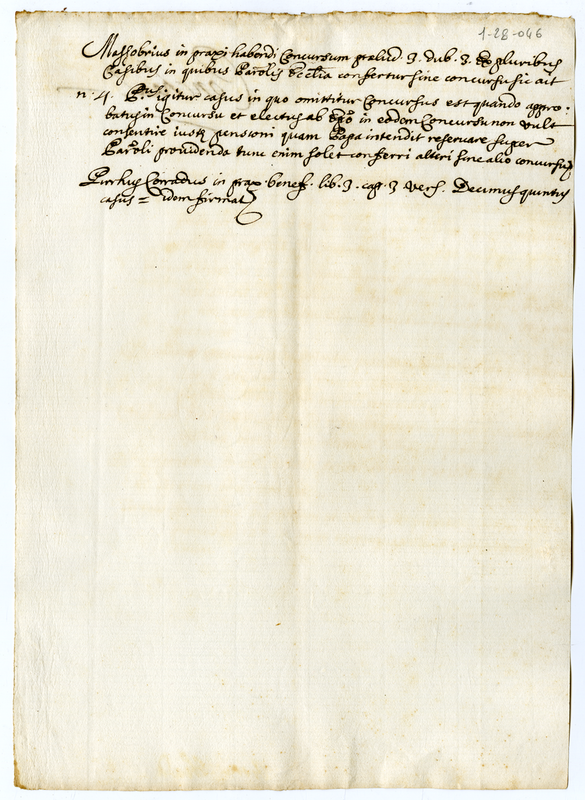 1-28-046
Massobrius in praxi habendi Concursum prælud. 3. dub. 3. De pluribus
Casibus in quibus Parōlis Ecclīa confertur sine concursu sic ait
n. 4. P.us igitur casus in quo omittitur Concursus est quando appro:
batus in Concursu et electus ab Epō in eodem Concursu non vult
consentire iustę pensioni quam Papa intendit reservare super
Parōli providenda tunc enim solet conferri alteri sine alio concursu
Pirrhus Corradus in prax. benef. lib. 3. cap. 3 vers. Decimus quintus
casus = idem firmat